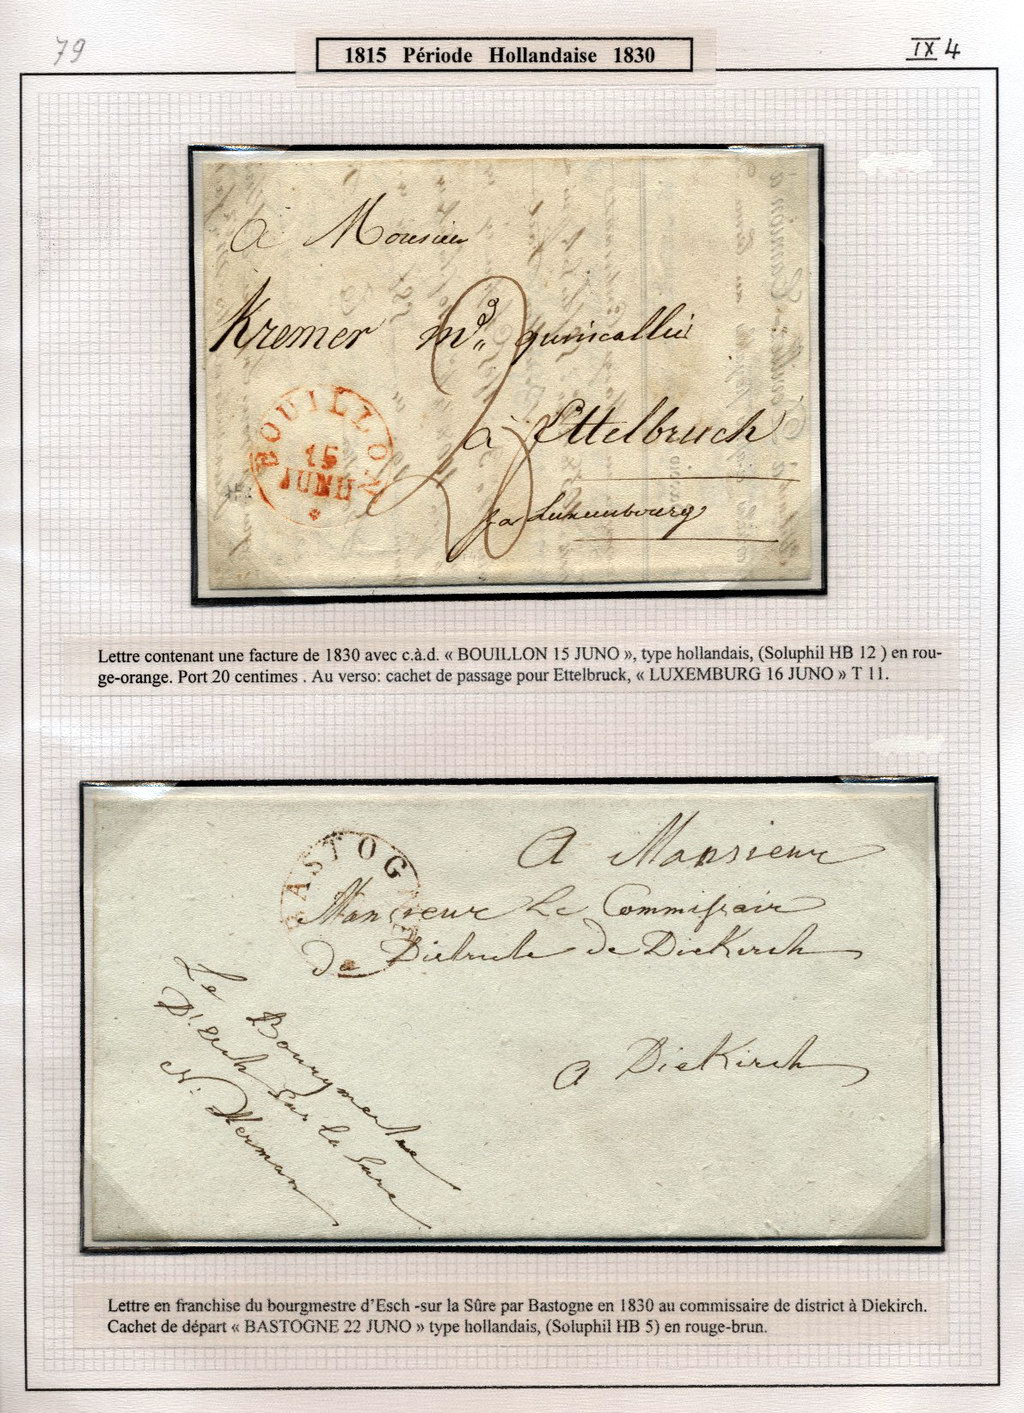 79
IX 4
1815 Période Hollandaise 1830
à Monsieur
Kremer md quincallier
à Ettelbruch
par Luxembourg
BOUILLON
15
JUNO
Lettre contenant une facture de 1830 avec c.à.d. « BOUILLON 15 JUNO », type hollandais, (Soluphil HB 12 ) en rou-
ge-orange. Port 20 centimes . Au verso: cachet de passage pour Ettelbruck, « LUXEMBURG 16 JUNO » T 11.
BASTOGNE
A Monsieur
Monsieur Le Commissair
de Distrule de Diekirch
a Diekirch
Le Bourgmestre
D'Esch sur la Sure
N: Herman
Lettre en franchise du bourgmestre d'Esch -sur la Sûre par Bastogne en 1830 au commissaire de district à Diekirch.
Cachet de départ « BASTOGNE 22 JUNO » type hollandais, (Soluphil HB 5) en rouge-brun.